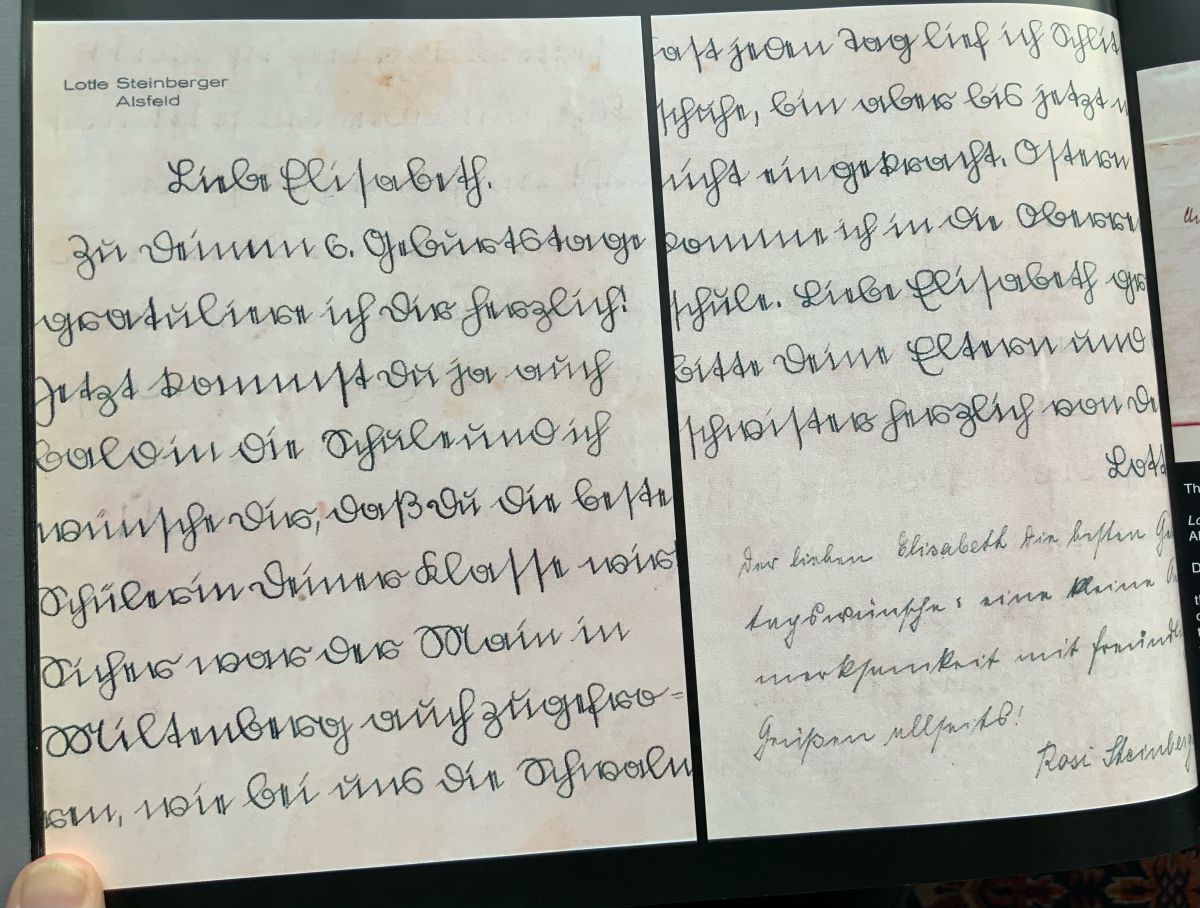 Lotte Steinberger
Alsfeld
Liebe Elisabeth.
Zu Deinem 6. Geburtstage
gratuliere ich Dir herzlich!
Jetzt kommst Du ja auch
bald in die Schule und ich
wünsche Dir, daß Du die beste
Schülerin Deiner Klasse wirs
Sicher war der Main in
Miltenberg auch zugefro=
ren, wie bei uns die Schwalm
ast jeden Tag lief ich Schlit
schuhe, bin aber bis jetzt n
icht eingekracht. Ostern
komme ich in die Oberre
schule. Liebe Elisabeth gr
bitte Deine Eltern und
schwister herzlich von De
Lott
Der lieben Elisabeth die besten Ge
tagswünsche & eine kleine
merksamkeit mit freundl
Grüßen allseits!
Rosi Steinberg
Th
Lo
Al
D